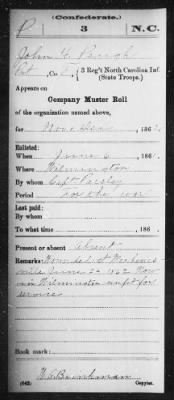 (Confederate.)
P 3 N.C.
John
Pvt, Co. 3 Reg't North Carolina Inf.
(State Troops.)
Appears on
Company Muster Roll
of the organization named above,
for Nov & Dec, 186
Enlisted:
When June 6, 186
Where Wilmington
By whom Capt
Period for the war
Last paid:
By whom
To what time , 186
Present or absent Absent
Remarks: Wounded at Mechanics
ville June 26 1862 Now
near Wilmington unfit for
service
Book mark:
(642) Copyist.